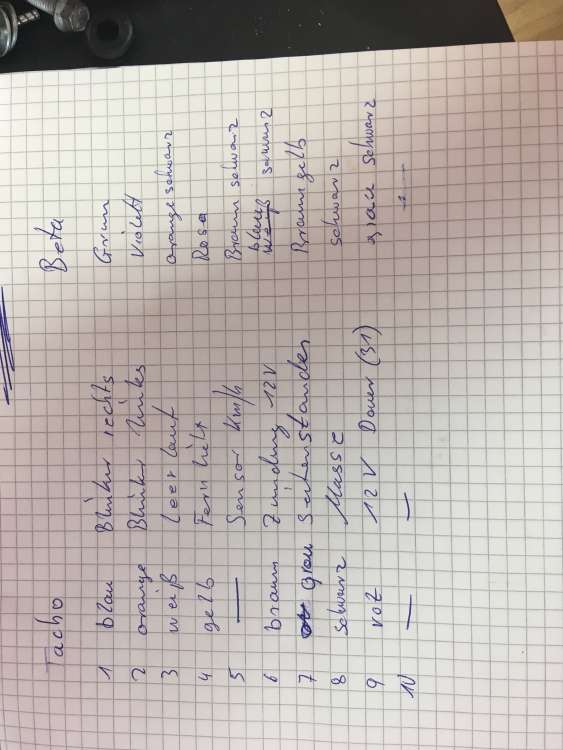 Tacho Beta
1 blau Blinker rechts Grün
2 orange Blinker links Violett
3 weiß Leerlauf orange schwarz
4 gelb Fernlicht Rosa
5 — Sensor Km/h Braun schwarz
6 braun Zündung 12V blau weiß schwarz
7 grau Seitenständer Braun gelb
8 schwarz Masse schwarz
9 rot 12V Dauer (31) grau schwarz
10 — —